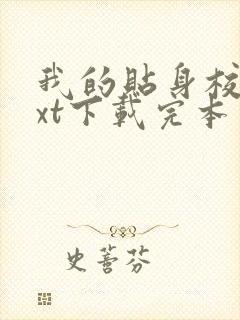 我的贴身校
xt下载完本
史蕾芬